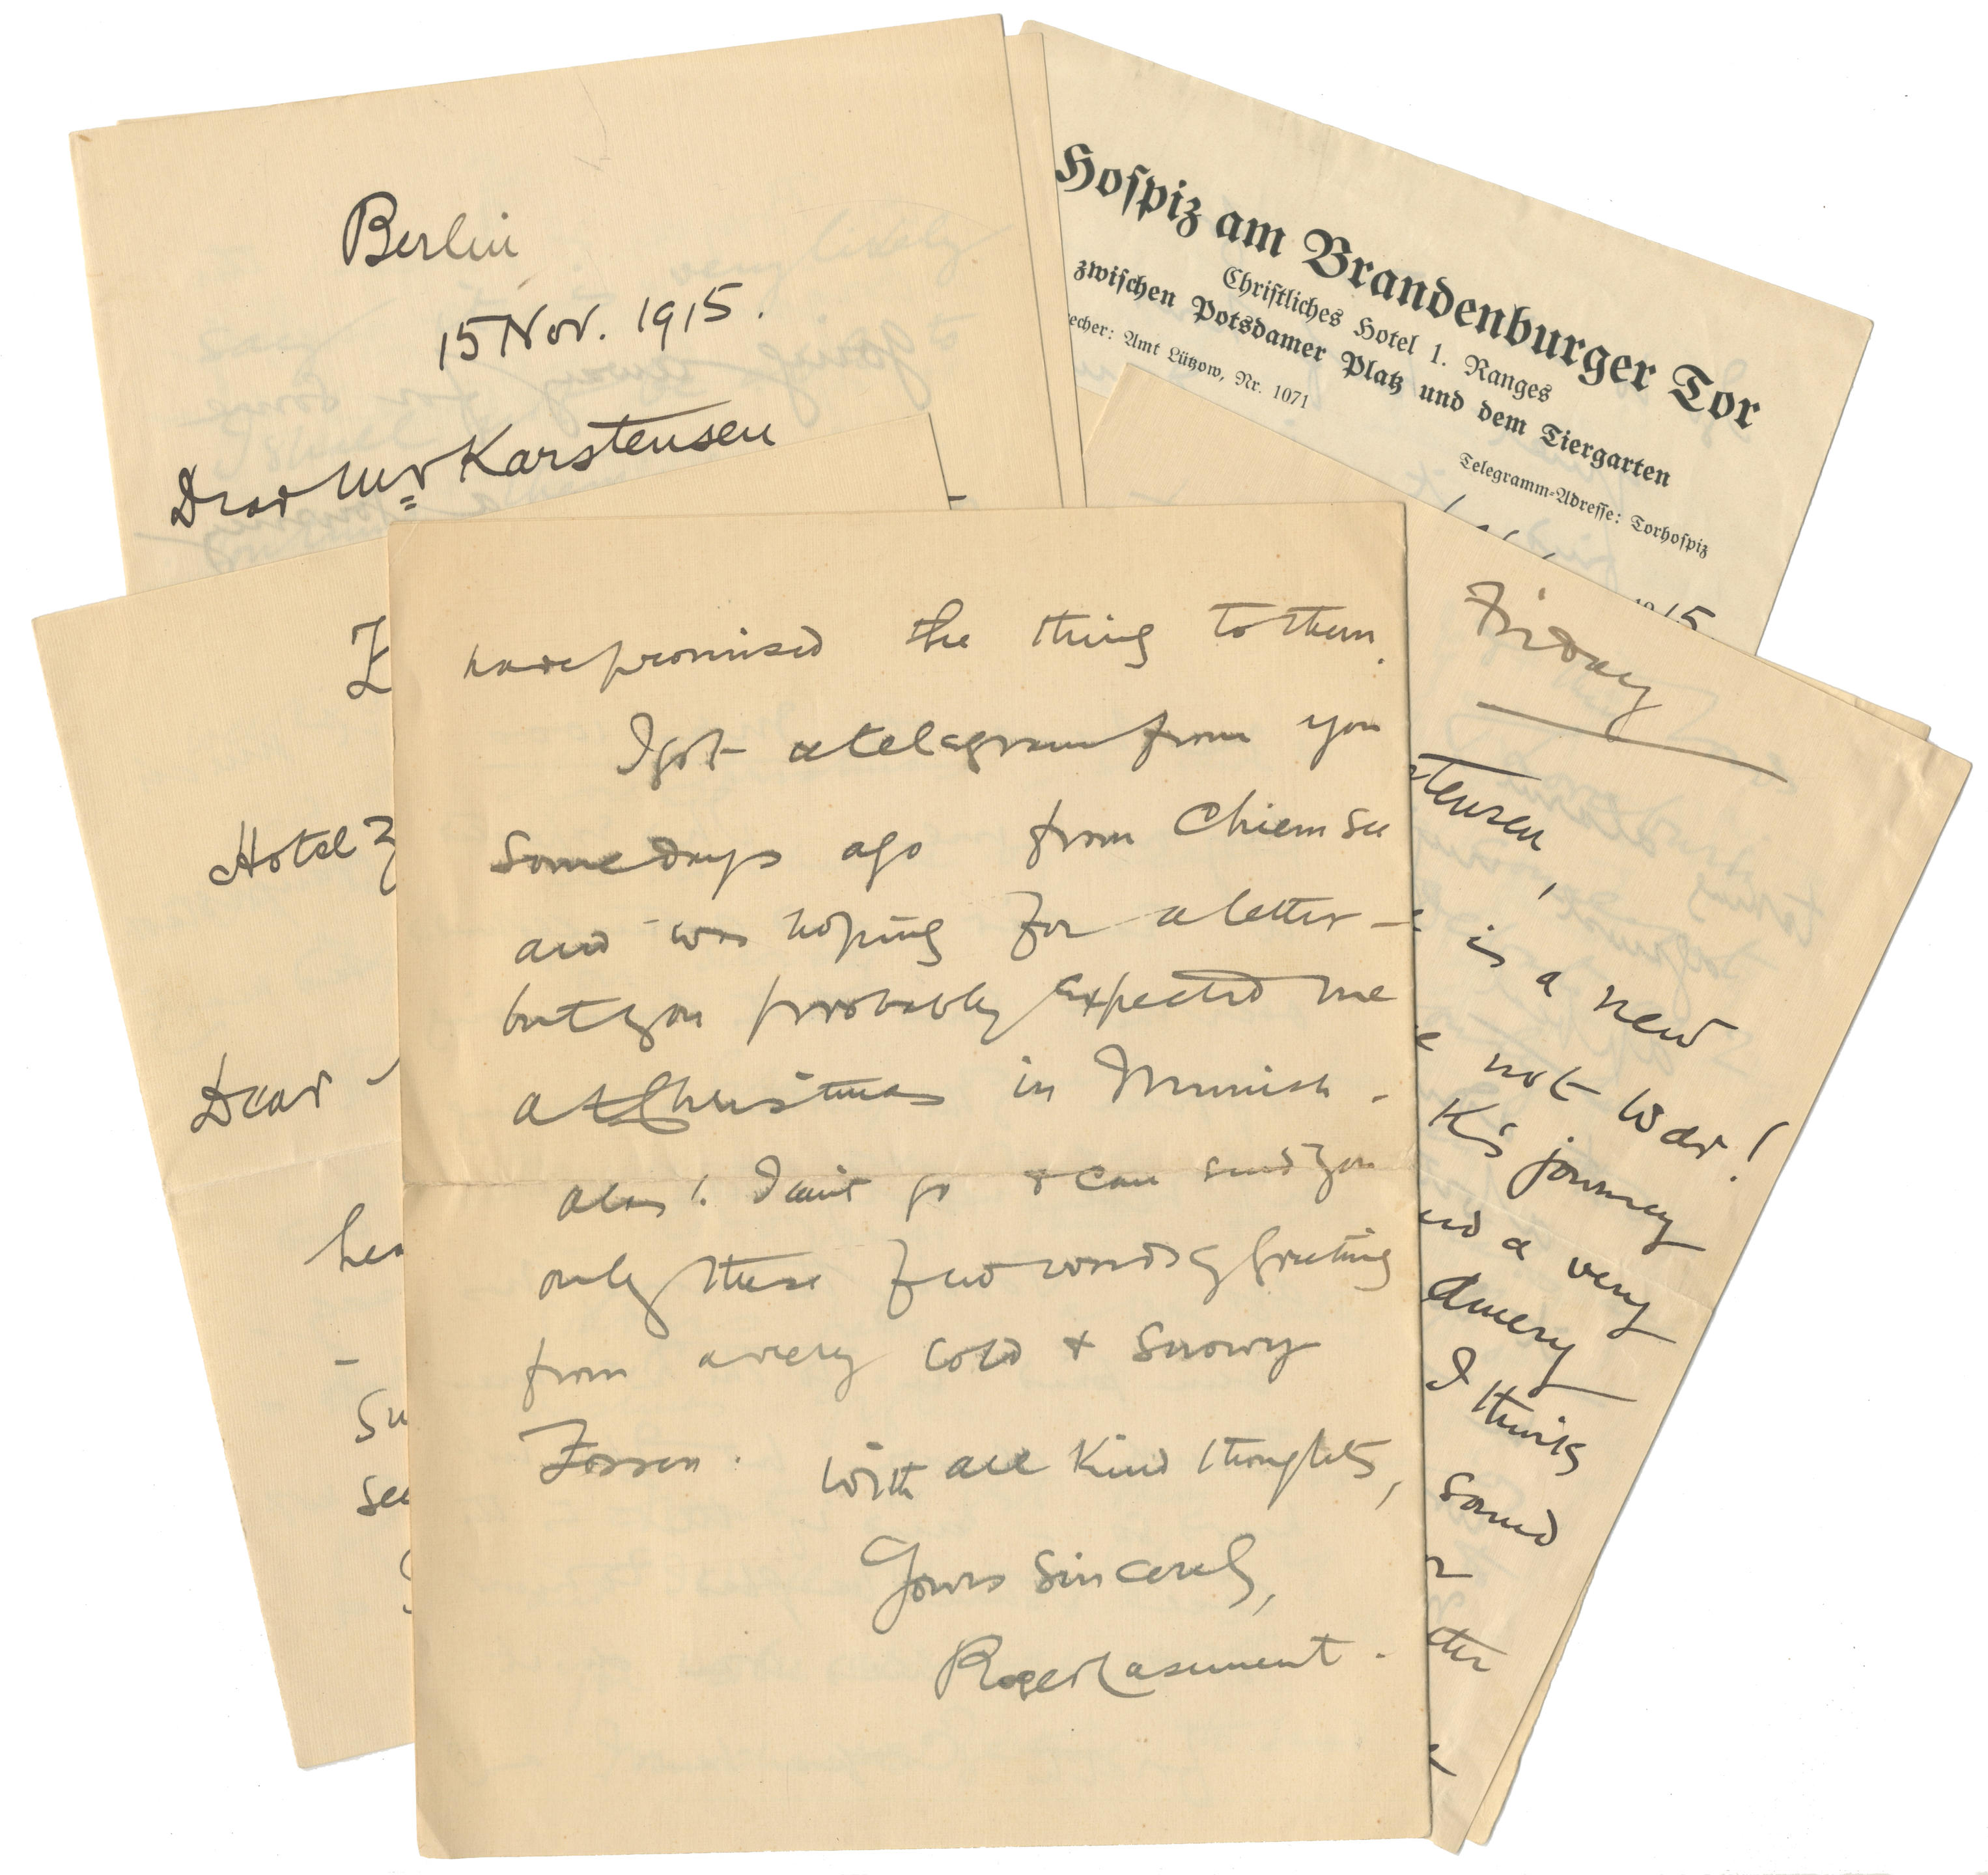 Berlin
15 Nov. 1915.
Dear Mr Karstensen
Hospiz am Brandenburger Tor
Christliches Hotel 1. Ranges
zwischen Potsdamer Platz und dem Tiergarten
echer: Amt Lützow, Nr. 1071
Telegramm-Adresse: Torhospiz
1915
Z
Hotel Z
Dear
hea
-
su
see
have promised the thing to them.
I got a telegram from you
some days ago from Chiemsee
and was hoping for a letter -
but you probably expected me
at Christmas in Munich.
alas! I can't go & can send you
only these few words of greeting
from a very cold & snowy
Zossen. With all kind thoughts,
Yours sincerely,
Roger Casement.
Friday
stensen,
is a new
e not War!
K's journey
nd a very
Amery
I think
sound
r
tter